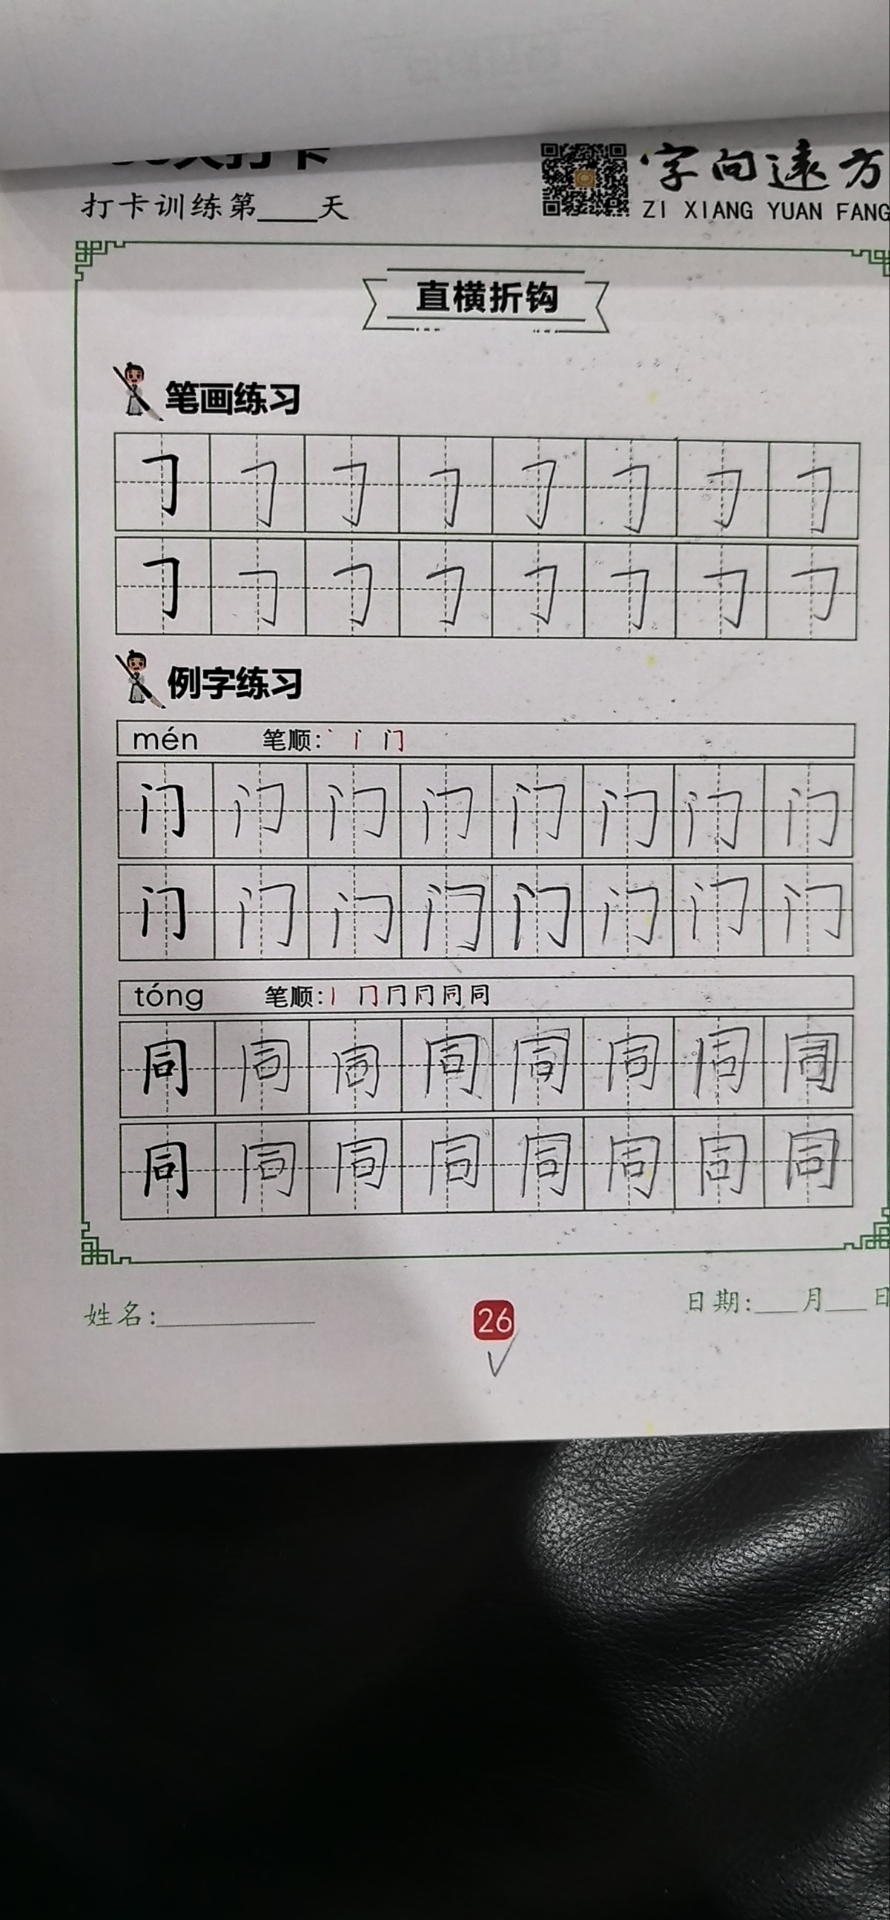 打卡训练第____天
字向远方
ZI XIANG YUAN FANG
直横折钩
笔画练习
㇆ ㇆ ㇆ ㇆ ㇆ ㇆ ㇆ ㇆
㇆ ㇆ ㇆ ㇆ ㇆ ㇆ ㇆ ㇆
例字练习
mén 笔顺: 丶 丨 门
门 门 门 门 门 门 门 门
门 门 门 门 门 门 门 门
tóng 笔顺: 丨 冂 冂 冋 同 同
同 同 同 同 同 同 同 同
同 同 同 同 同 同 同 同
姓名:__________ 日期:___月___日
26